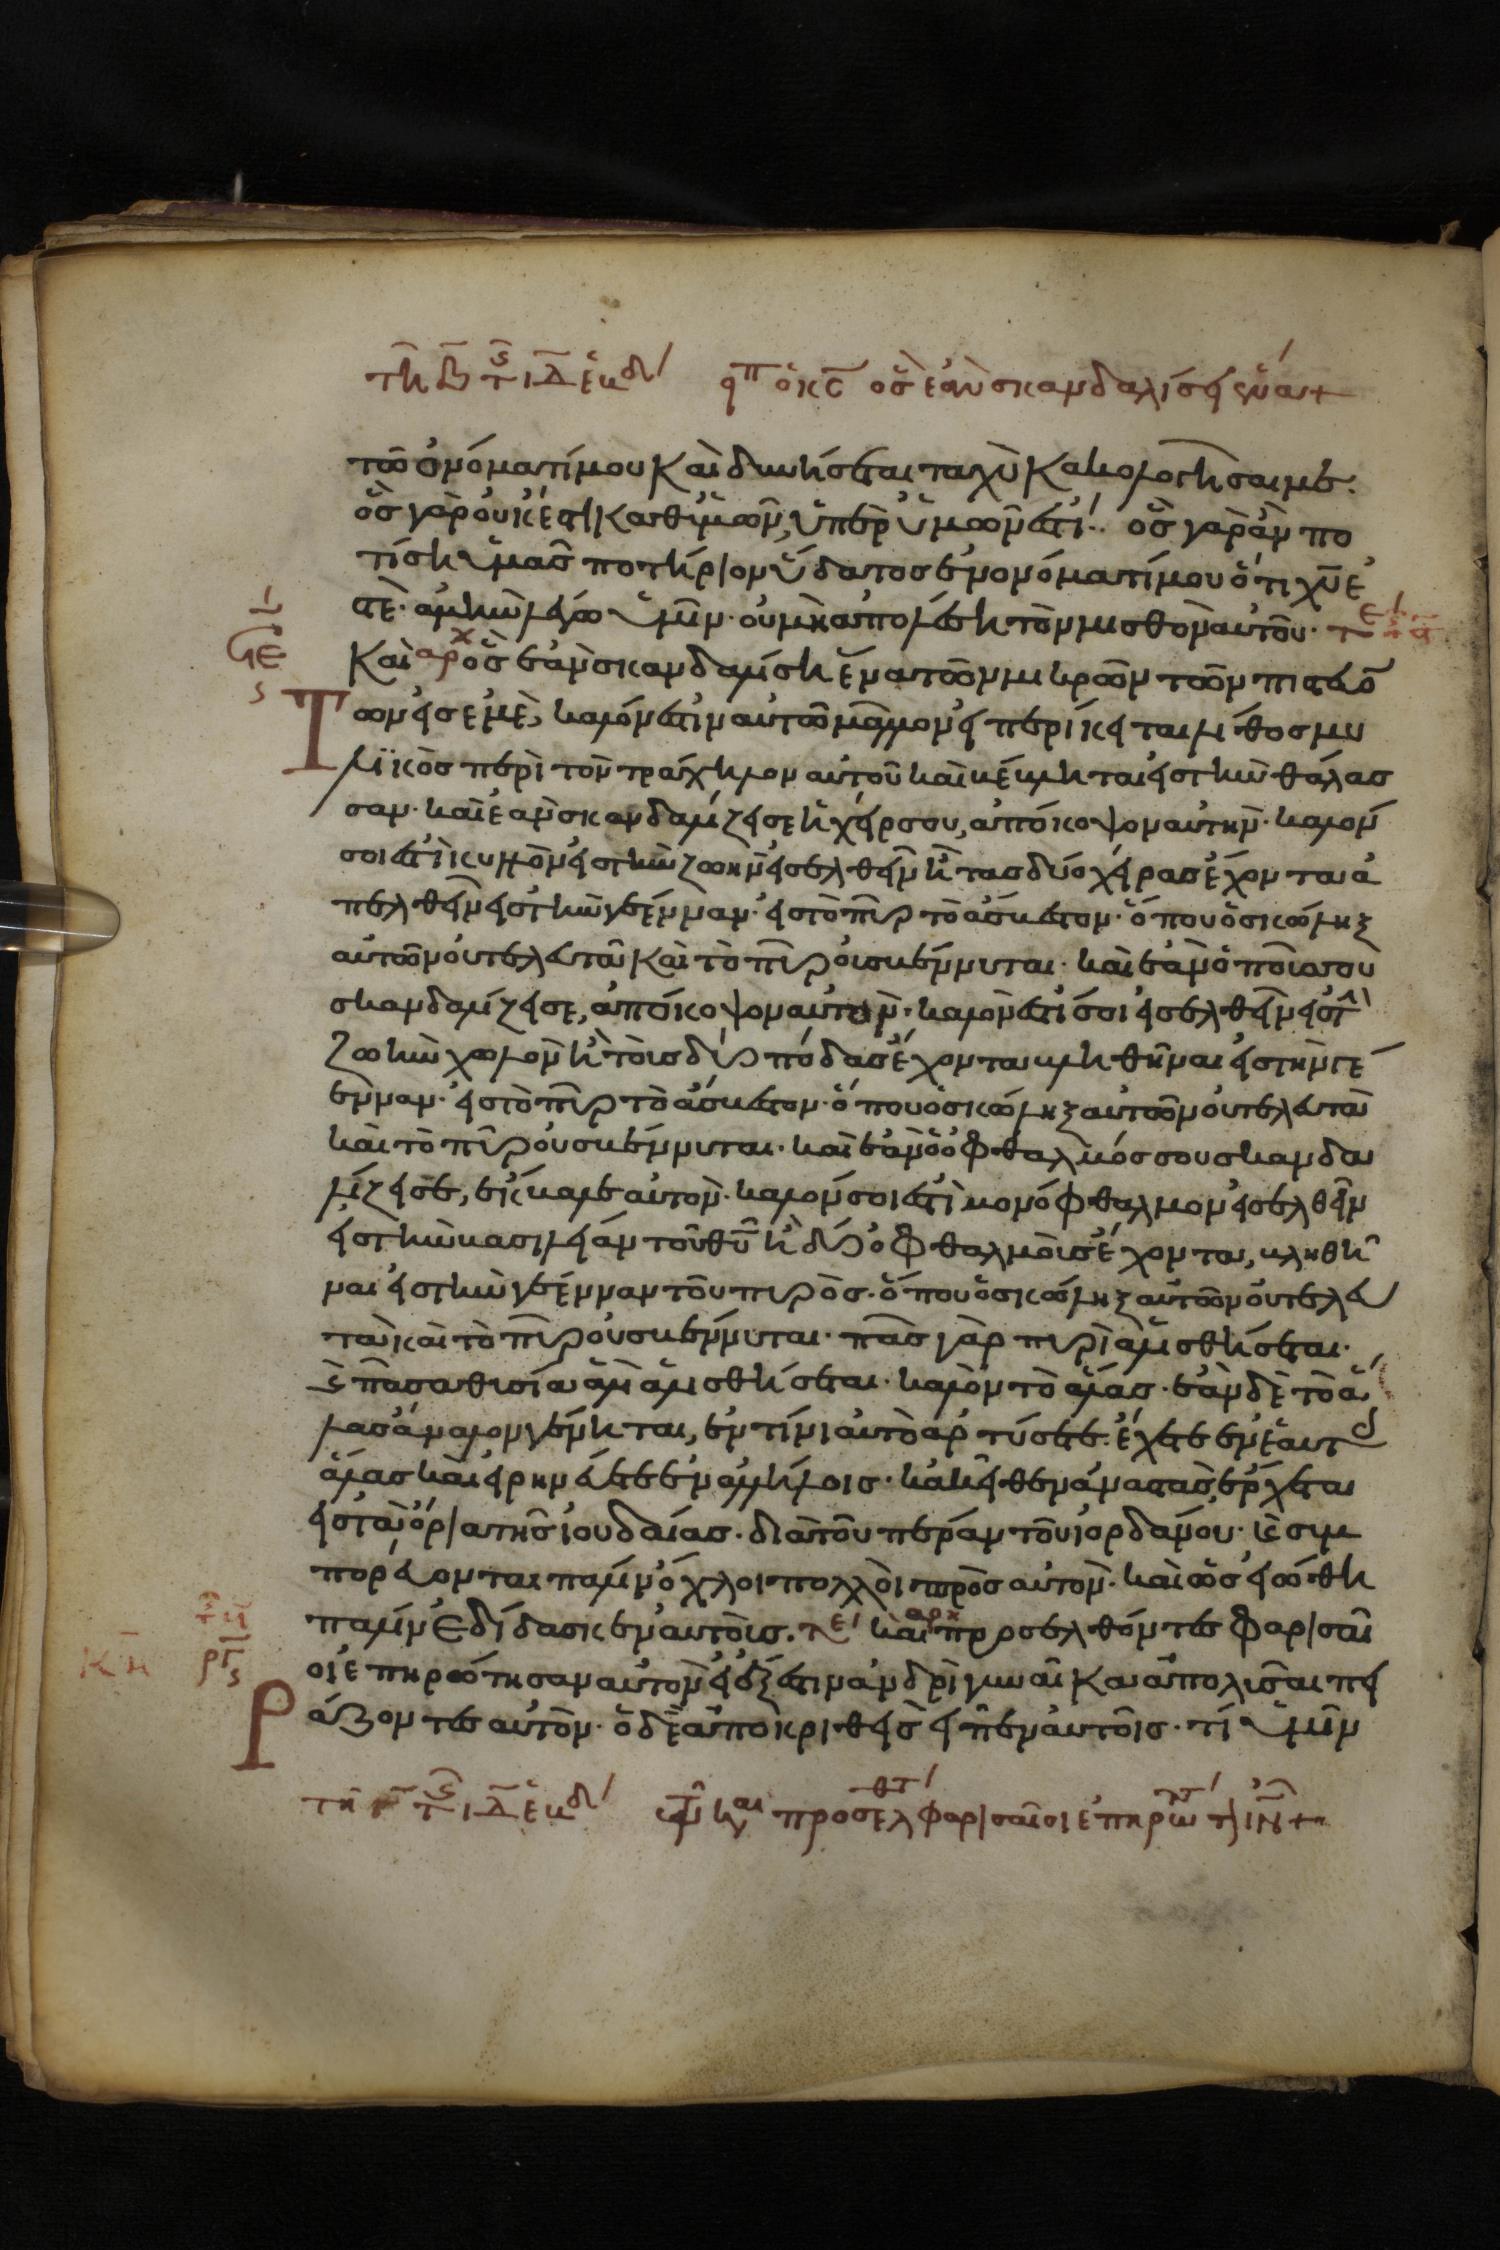 τῆ β τ ς ιδ ἑβδ εἶπ ὁ κς ὃς ἐὰν σκανδαλίση ἕνα +
τῶ ὀνόματί μου καὶ δυνήσεται ταχὺ κακολογῆσαί με.
ὃς γὰρ οὐκ ἔστι καθ ἡμῶν, ὑπὲρ ἡμῶν ἐστί. ὃς γὰρ ἂν πο
τίση ὑμᾶς ποτήριον ὕδατος ἐν ὀνόματί μου ὅτι χῦ ἐ
στὲ. ἀμὴν λέγω ὑμῖν. οὐ μὴ ἀπολέση τὸν μισθὸν αὐτοῦ. τε
Καὶ αρχ ὃς ἐὰν σκανδαλίση ἕνα τῶν μικρῶν τῶν πιστευό
των εἰς ἐμὲ, καλόν ἐστιν αὐτῶ μᾶλλον εἰ περίκειται λίθος μυ
λϊκὸς περὶ τὸν τράχηλον αὐτοῦ καὶ βέβληται εἰς τὴν θάλασ
σαν. καὶ ἐὰν σκανδαλίζει σε ἡ χείρ σου, ἀπόκοψον αὐτὴν. καλόν
σοι ἐστὶ κυλλὸν εἰς τὴν ζωὴν εἰσελθεῖν ἢ τὰς δύο χεῖρας ἔχοντα ἀ
πελθεῖν εἰς τὴν γέενναν. εἰς τὸ πῦρ τὸ ἄσβεστον. ὅπου ὁ σκώληξ
αὐτῶν οὐ τελευτᾶ καὶ τὸ πῦρ οὐ σβέννυται. καὶ ἐὰν ὁ ποῦς σου
σκανδαλίζει σε, ἀπόκοψον αὐτὸν. καλὸν ἐστί σοι εἰσελθεῖν εἰς τ
ζωὴν χωλὸν ἢ τοὺς δύο πόδας ἔχοντα βληθῆναι εἰς τὴν γέ
ενναν. εἰς τὸ πῦρ τὸ ἄσβεστον. ὅπου ὁ σκώληξ αὐτῶν οὐ τελευτᾶ
καὶ τὸ πῦρ οὐ σβέννυται. καὶ ἐὰν ὁ ὀφθαλμός σου σκανδα
λίζει σε, ἔκβαλε αὐτὸν. καλόν σοι ἐστὶ μονόφθαλμον εἰσελθεῖν
εἰς τὴν βασιλείαν τοῦ θῦ ἢ δύο ὀφθαλμοὺς ἔχοντα, βληθῆ
ναι εἰς τὴν γέενναν τοῦ πυρὸς. ὅπου ὁ σκώληξ αὐτῶν οὐ τελευ
τᾶ καὶ τὸ πῦρ οὐ σβέννυται. πᾶς γὰρ πυρὶ ἁλισθήσεται.
καὶ πᾶσα θυσία ἁλὶ ἁλισθήσεται. καλὸν τὸ ἅλας. ἐὰν δὲ τὸ ἅ
λας ἄναλον γένηται, ἐν τίνι αὐτὸ ἀρτύσετε. ἔχετε ἐν ἑαυτ
ἅλας καὶ εἰρηνεύετε ἐν ἀλλήλοις. κἀκεῖθεν ἀναστὰς ἔρχεται
εἰς τὰ ὅρια τῆς ἰουδαίας. διὰ τοῦ πέραν τοῦ ἰορδάνου. καὶ συμ
πορεύονται πάλιν ὄχλοι πολλοὶ πρὸς αὐτὸν. καὶ ὡς εἰώθη
πάλιν ἐδίδασκεν αὐτοὺς. τε καὶ αρχ προσελθόντες φαρισαῖ
οι ἐπηρώτησαν αὐτὸν εἰ ἔξεστιν ἀνδρὶ γυναῖκα ἀπολῦσαι πει
ράζοντες αὐτὸν. ὁ δὲ ἀποκριθεὶς εἶπεν αὐτοῖς. τί ὑμῖν
τῆ γ τ ς ιδ ἑβδ τῶ καιρῶ προσελθτ φαρισαῖοι ἐπηρώτ τ ιν +